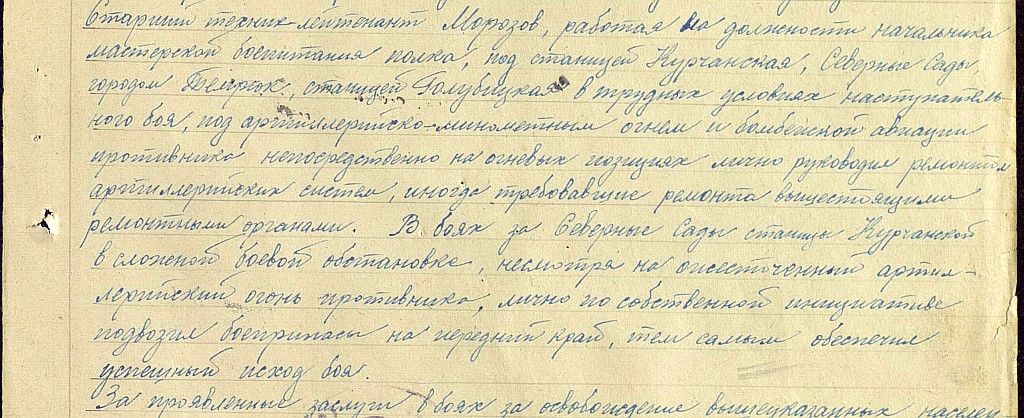 Старший техник-лейтенант Морозов, работая на должности начальника
мастерской боепитания полка, под станицей Курчанская, Северные Сады,
городом Темрюк, станицей Голубицкая в трудных условиях наступатель-
ного боя, под артиллерийско-минометным огнем и бомбежкой авиации
противника непосредственно на огневых позициях лично руководил ремонтом
артиллерийских систем, иногда требовавшие ремонта вышестоящими
ремонтными органами. В боях за Северные Сады станицы Курчанской
в сложной боевой обстановке, несмотря на ожесточенный артил-
лерийский огонь противника, лично по собственной инициативе
подвозил боеприпасы на передний край, тем самым обеспечил
успешный исход боя.
За проявленные заслуги в боях за освобождение вышеуказанных населен